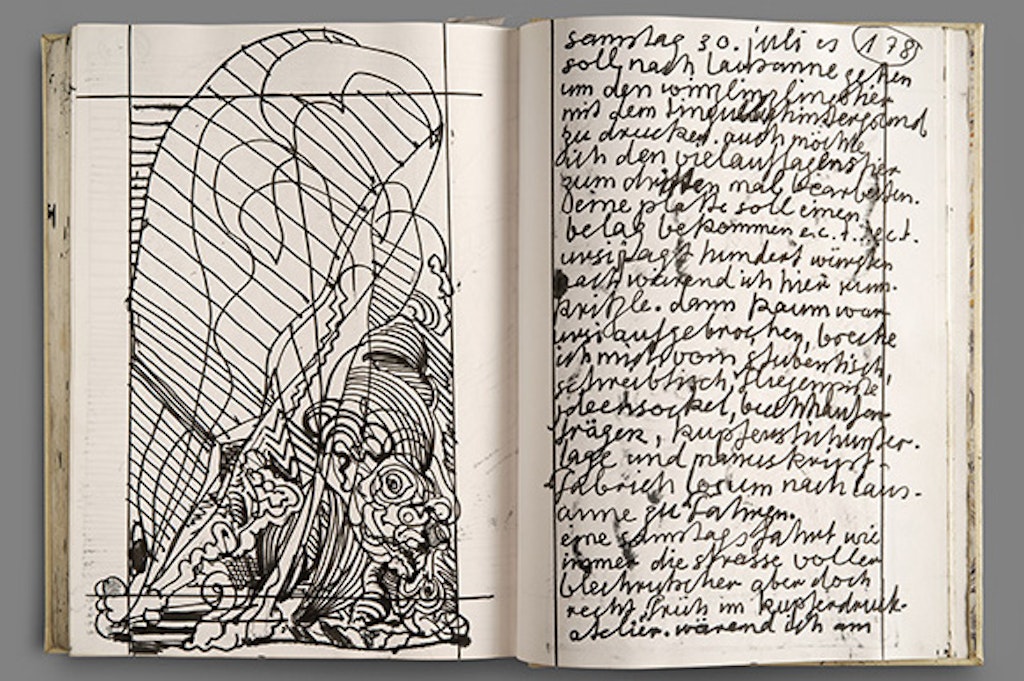 samstag 30. juli es 178
soll nach lausanne gehen
um den
mit dem hintergrund
zu drucken. auch möchte
ich den vielaussagenstier
zum dritten mal bearbeiten.
deine platte soll einen
belag bekommen e.c.t. e.c.t.
ursi sagt hundert
nach wärend ich hier rum-
kritzle. dann kaum war
ursi aufgebrochen, bocke
ich mich vom stubentisch,
schreibtisch, fliegenpiste
ideensockel,
träger, kupferstichunter-
lage und manuskript-
fabrich los um nach laus-
anne zu fahren.
eine samstagsfahrt wie
immer die strasse voller
blechrutscher aber doch
recht früh im kupferdruck-
atelier. wärend ich am